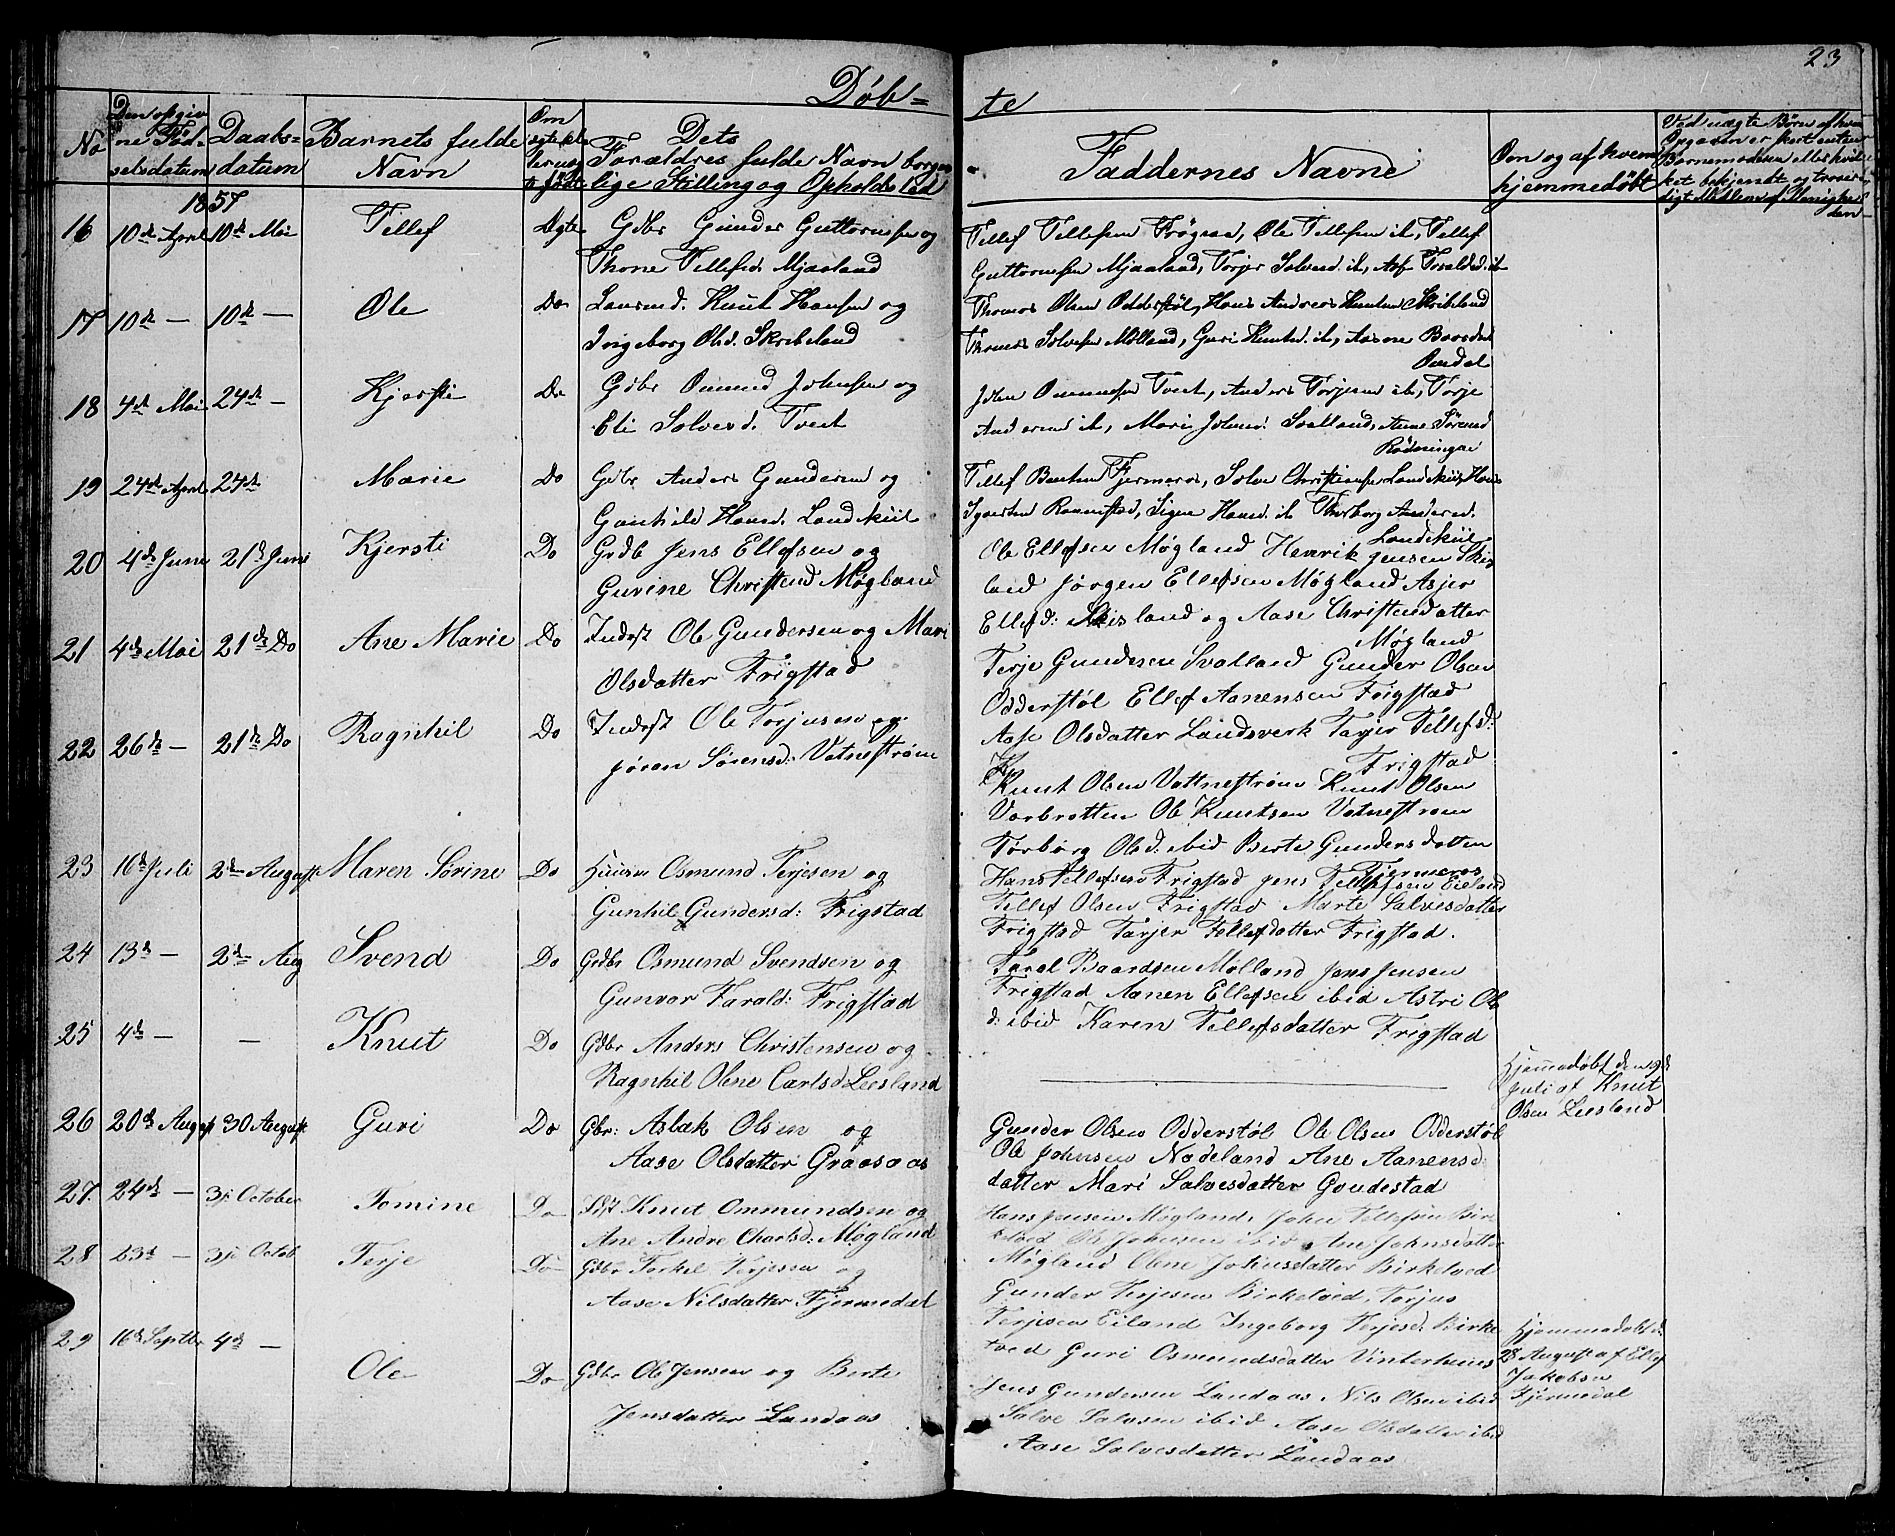 23
Døb= te
No
Den opgiv
ne Fød-
selsdatum
Daabs=
datum
Barnets fulde
Navn
Om
ægte el
ler uæg
te født
Dets
Forældres fulde Navn borger
lige Stilling og Opholds Sted
Faddernes Navne
Om og af hvem
hjemmedøbt
Ved uægte Børn af hvem
Opgaven er skeet enten
Barnemoderen eller hvil
ket bekjendt og trovær
digt Medlem af Menighe
den
1857
16 10de April 10de Mai Tellef Ægte Gdbr Gunder Guttormsen og
Thone Tellefsd. Mjaaland
Tellef Tellefsen Frøgaa, Ole Tellefsen it, Tellef
Guttormsen Mjaaland, Torjer Salvesd. it, Aase Taraldsd. it
17 10de — 10de — Ole Do Knut Hansen og
Ingeborg Olsd. Skribeland
Thomas Olsen Odderstøl, Hans Andreas Knutsen Skribeland
Salvesen Mølland, Guri Knutsd. it, Baardsd.
18 4de Mai 24de — Kjersti Do Gdbr Omund Johnsen og
Eli Salvesd. Tveit
John Omundsen Tveit, Anders Torjesen it, Torje
Andersen it, Mari Johnsd. Svalland, Anne Sørensd
Rødningen
19 24de April 24de Marie Do Gdbr Anders Gundersen og
Gunhild Hansd. Landskiil
Tellef Bentsen Fjermeros, Salve Christensen Landskiil, Hans
Signe Hansd. it Thorborg Andersd.
Landskiil
20 4de Juni 21de Juni Kjersti Do Grdb Jens Ellefsen og
Gurine Christensd Møgland
Ole Ellefsen Møgland Henrik Jensen Skis
land Jørgen Ellefsen Møgland Asjer
Ellefsd: Skisland og Aase Christensdatter
Møgland
21 4de Mai 21de Do Ane Marie Do Inderst Ole Gundersen og Mari
Olsdatter Frigstad
Terje Gundersen Svalland Gunder Olsen
Odderstøl Ellef Aanensen Frigstad
Aase Olsdatter Landsverk Tarjer Tellefsd:
Frigstad
22 26de — 21de Do Ragnhil Do Inderst Ole Torjusen og
Jøran Sørensd: Vatnestrøm
Knut Olsen Vattnestrøm Knut Olsen
Varbrotten Ole Knutsen Vatnestrøm
Torborg Olsd. ibid Berte Gundersdatter
Fjermeros
23 16de Juli 2de August Maren Sørine Do Huusm Osmund Terjesen og
Gunhil Gundersd: Frigstad
Hans Tellefsen Frigstad Jens Tellefsen Eieland
Tellef Olsen Frigstad Marte Salvesdatter
Frigstad Tarjer Tellefsdatter Frigstad.
24 13de — 2de Aug Svend Do Grdbr Osmund Svendsen og
Gunvor Tarald: Frigstad
Tarol Baardsen Mølland Jens Jensen
Frigstad Aanen Ellefsen ibid Astri Ols
d: ibid Karen Tellefsdatter Frigstad
25 4de — — Knut Do Gdbr Anders Christensen og
Ragnhil Olene Carlsd Liesland
Hjemmedøbt den 19de
Juli af Knut
Olsen Liesland
26 20de August 30 August Guri Do Gbr: Aslak Olsen og
Aase Olsdatter Graasaas
Gunder Olsen Odderstøl Ole Olsen Odderstøl
Ole Johnsen Nodeland Ane Aanensd:
datter Mari Salvesdatter Goudestad
27. 24de — October Tomine Do Knut Ommundsen og
Ane Andre Charlsd: Møgland
Hans Jensen Møgland, John Tellefsen Birke
tved Ole Johnsen ibid Ane Johnsdatter
Møgland Olene Johnsdatter Birketved
28 23de — Octob Terje Do Gdbr Torkel Terjesen og
Aase Nilsdatter Fjermedal
Gunder Terjesen Birketved, Torjus
Terjesen Eiland Ingeborg Terjesd: Birke
tved Guri Osmundsdatter Vinterhuus
29 16de Septbr 4de — Ole Do Gdbr Ole Jensen og Berte
Jensdatter Landaas
Jens Gundersen Landaas Nils Olsen ibid
Salve Salvesen ibid Aase Olsdatter ibid
Aase Salvesdatter Landaas
Hjemmedøbt d:
28 August af Ellef
Jakobsen
Fjermedal